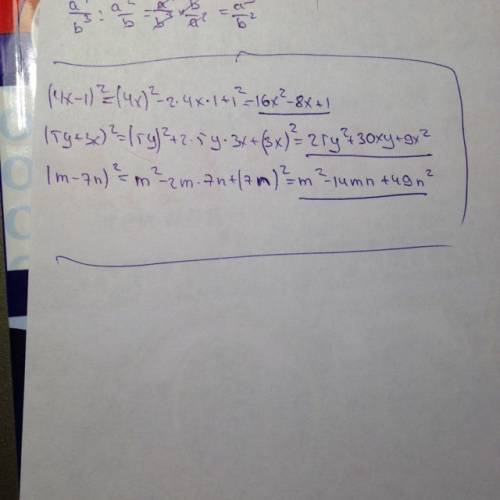 (4x-1)²=(4x)²-2·4x·1+1²=16x²-8x+1
(5y+3x)²=(5y)²+2·5y·3x+(3x)²=25y²+30xy+9x²
(m-7n)²=m²-2m·7n+(7n)²=m²-14mn+49n²